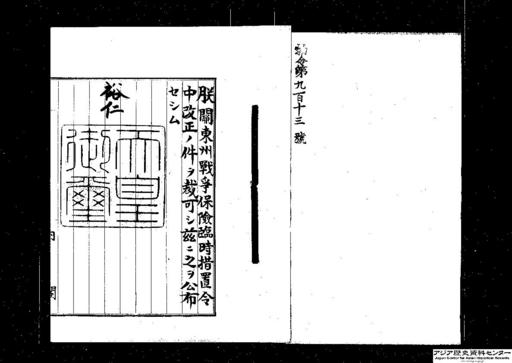 勅令第九百十三號
朕關東州戰爭保險臨時措置令
中改正ノ件ヲ裁可シ茲ニ之ヲ公布
セシム
裕仁
天皇
御璽
内閣
アジア歴史資料センター
Japan Center for Asian Historical Records